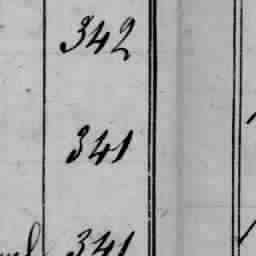 342
341
341